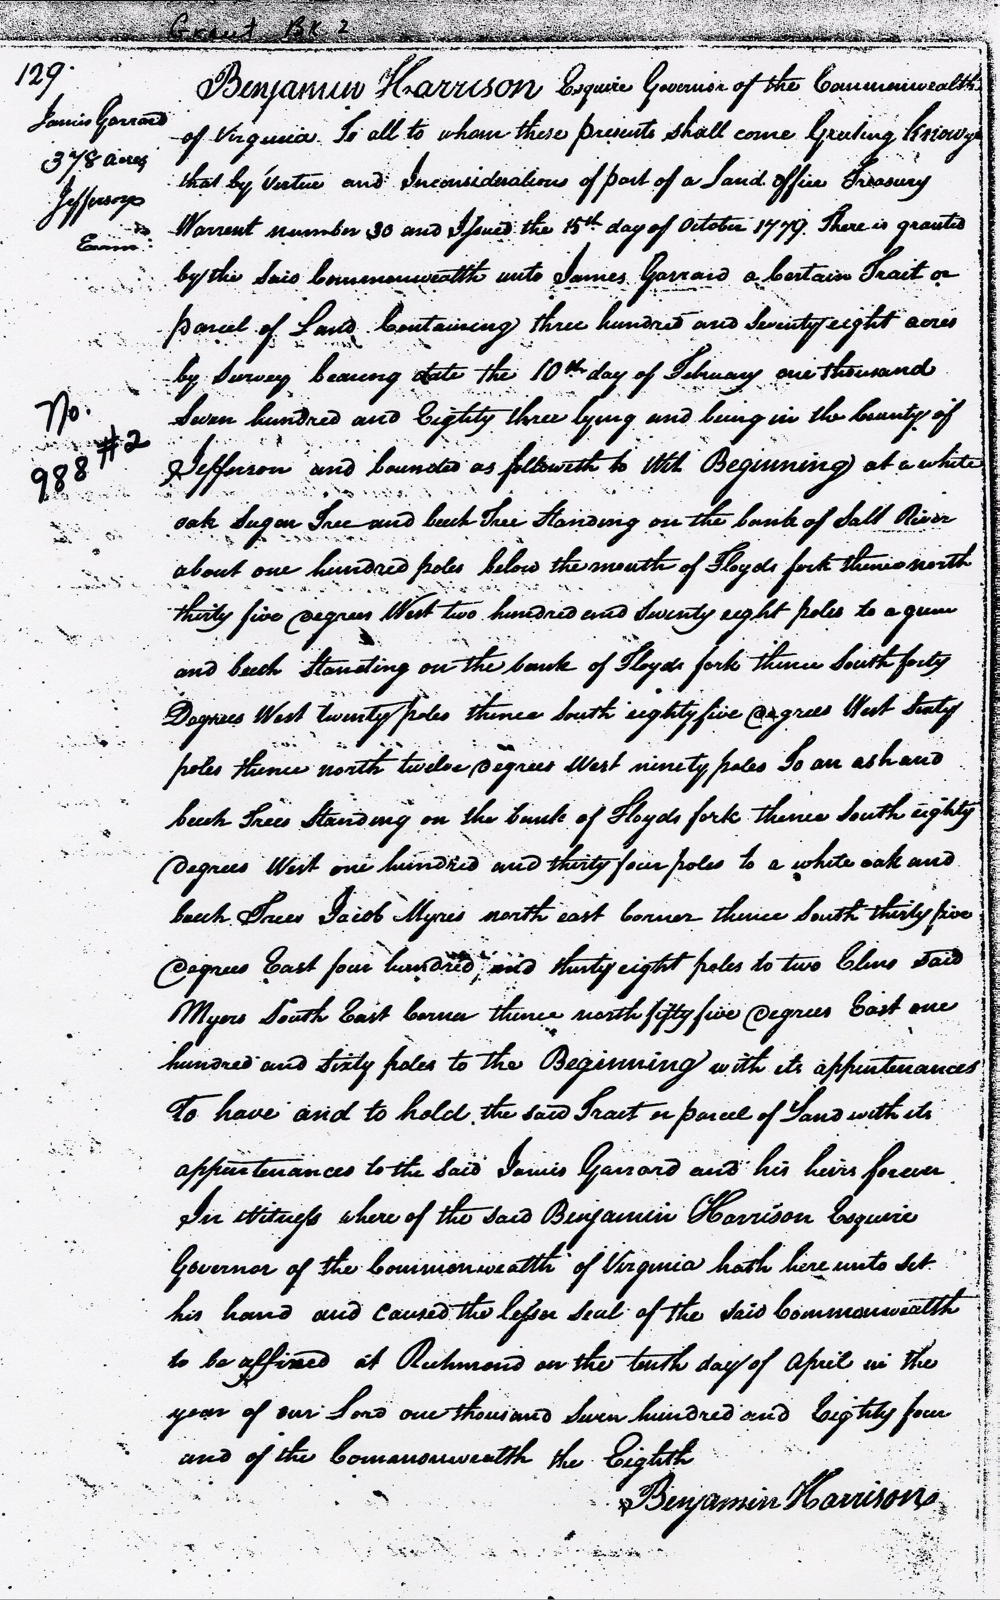 Grant BK 2
129.
James Garrard
378 acres
Jefferson
Exam:
No.
988 #2
Benjamin Harrison Esquire Governor of the Commonwealth
of Virginia To all to whom these presents shall come Greeting Know ye
that by Virtue and Inconsiderations of part of a Land Office Treasury
Warrent number 30 and Issued the 15th day of October 1779. There is granted
by the said Commonwealth unto James Garrard a Certain Trait or
parcel of Land Containing three hundred and Seventy eight acres
by Survey bearing date the 10th day of February one thousand
Seven hundred and Eighty three lying and being in the County of
Jefferson and bounded as followeth to Wit Beginning at a white
oak Sugar Tree and beech Tree Standing on the bank of Salt River
about one hundred poles below the mouth of Floyds fork thence north
thirty five Degrees West two hundred and Seventy eight poles to a gum
and beech Standing on the bank of Floyds fork thence South forty
Degrees West twenty poles thence South eighty five Degrees West Sixty
poles thence north twelve Degrees West ninety poles To an ash and
beech Trees Standing on the bank of Floyds fork thence South eighty
Degrees West one hundred and thirty four poles to a white oak and
beech Trees Jacob Myres north east Corner thence South thirty five
Degrees East four hundred and thirty eight poles to two Elms said
Myers South East Corner thence north fifty five Degrees East one
hundred and sixty poles to the Beginning with its appurtenances
To have and to hold the said Trait or parcel of Land with its
appurtenances to the said James Garrard and his heirs forever
In Witness where of the said Benjamin Harrison Esquire
Governor of the Commonwealth of Virginia hath here unto set
his hand and caused the lesser seal of the said Commonwealth
to be affixed at Richmond on the tenth day of April in the
year of our Lord one thousand Seven hundred and Eighty four
and of the Commonwealth the Eighth
Benjamin Harrison